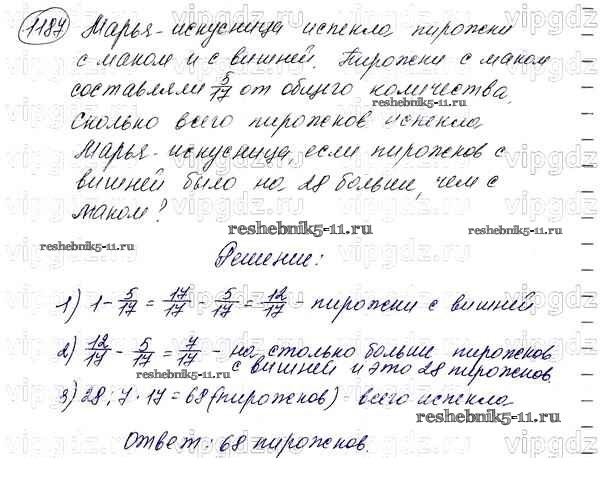 1187 Марья-искусница испекла пирожки
с маком и с вишней. Пирожки с маком
составляли 5/17 от общего количества.
reshebnik5-11.ru
Сколько всего пирожков испекла
Марья-искусница, если пирожков с
вишней было на 28 больше, чем с
маком?
reshebnik5-11.ru
reshebnik5-11.ru
Решение:
1) 1 - 5/17 = 17/17 - 5/17 = 12/17 - пирожки с вишней
2) 12/17 - 5/17 = 7/17 - на столько больше пирожков
с вишней и это 28 пирожков.
3) 28 : 7 · 17 = 68 (пирожков) - всего испекла
reshebnik5-11.ru
Ответ: 68 пирожков.
vipgdz